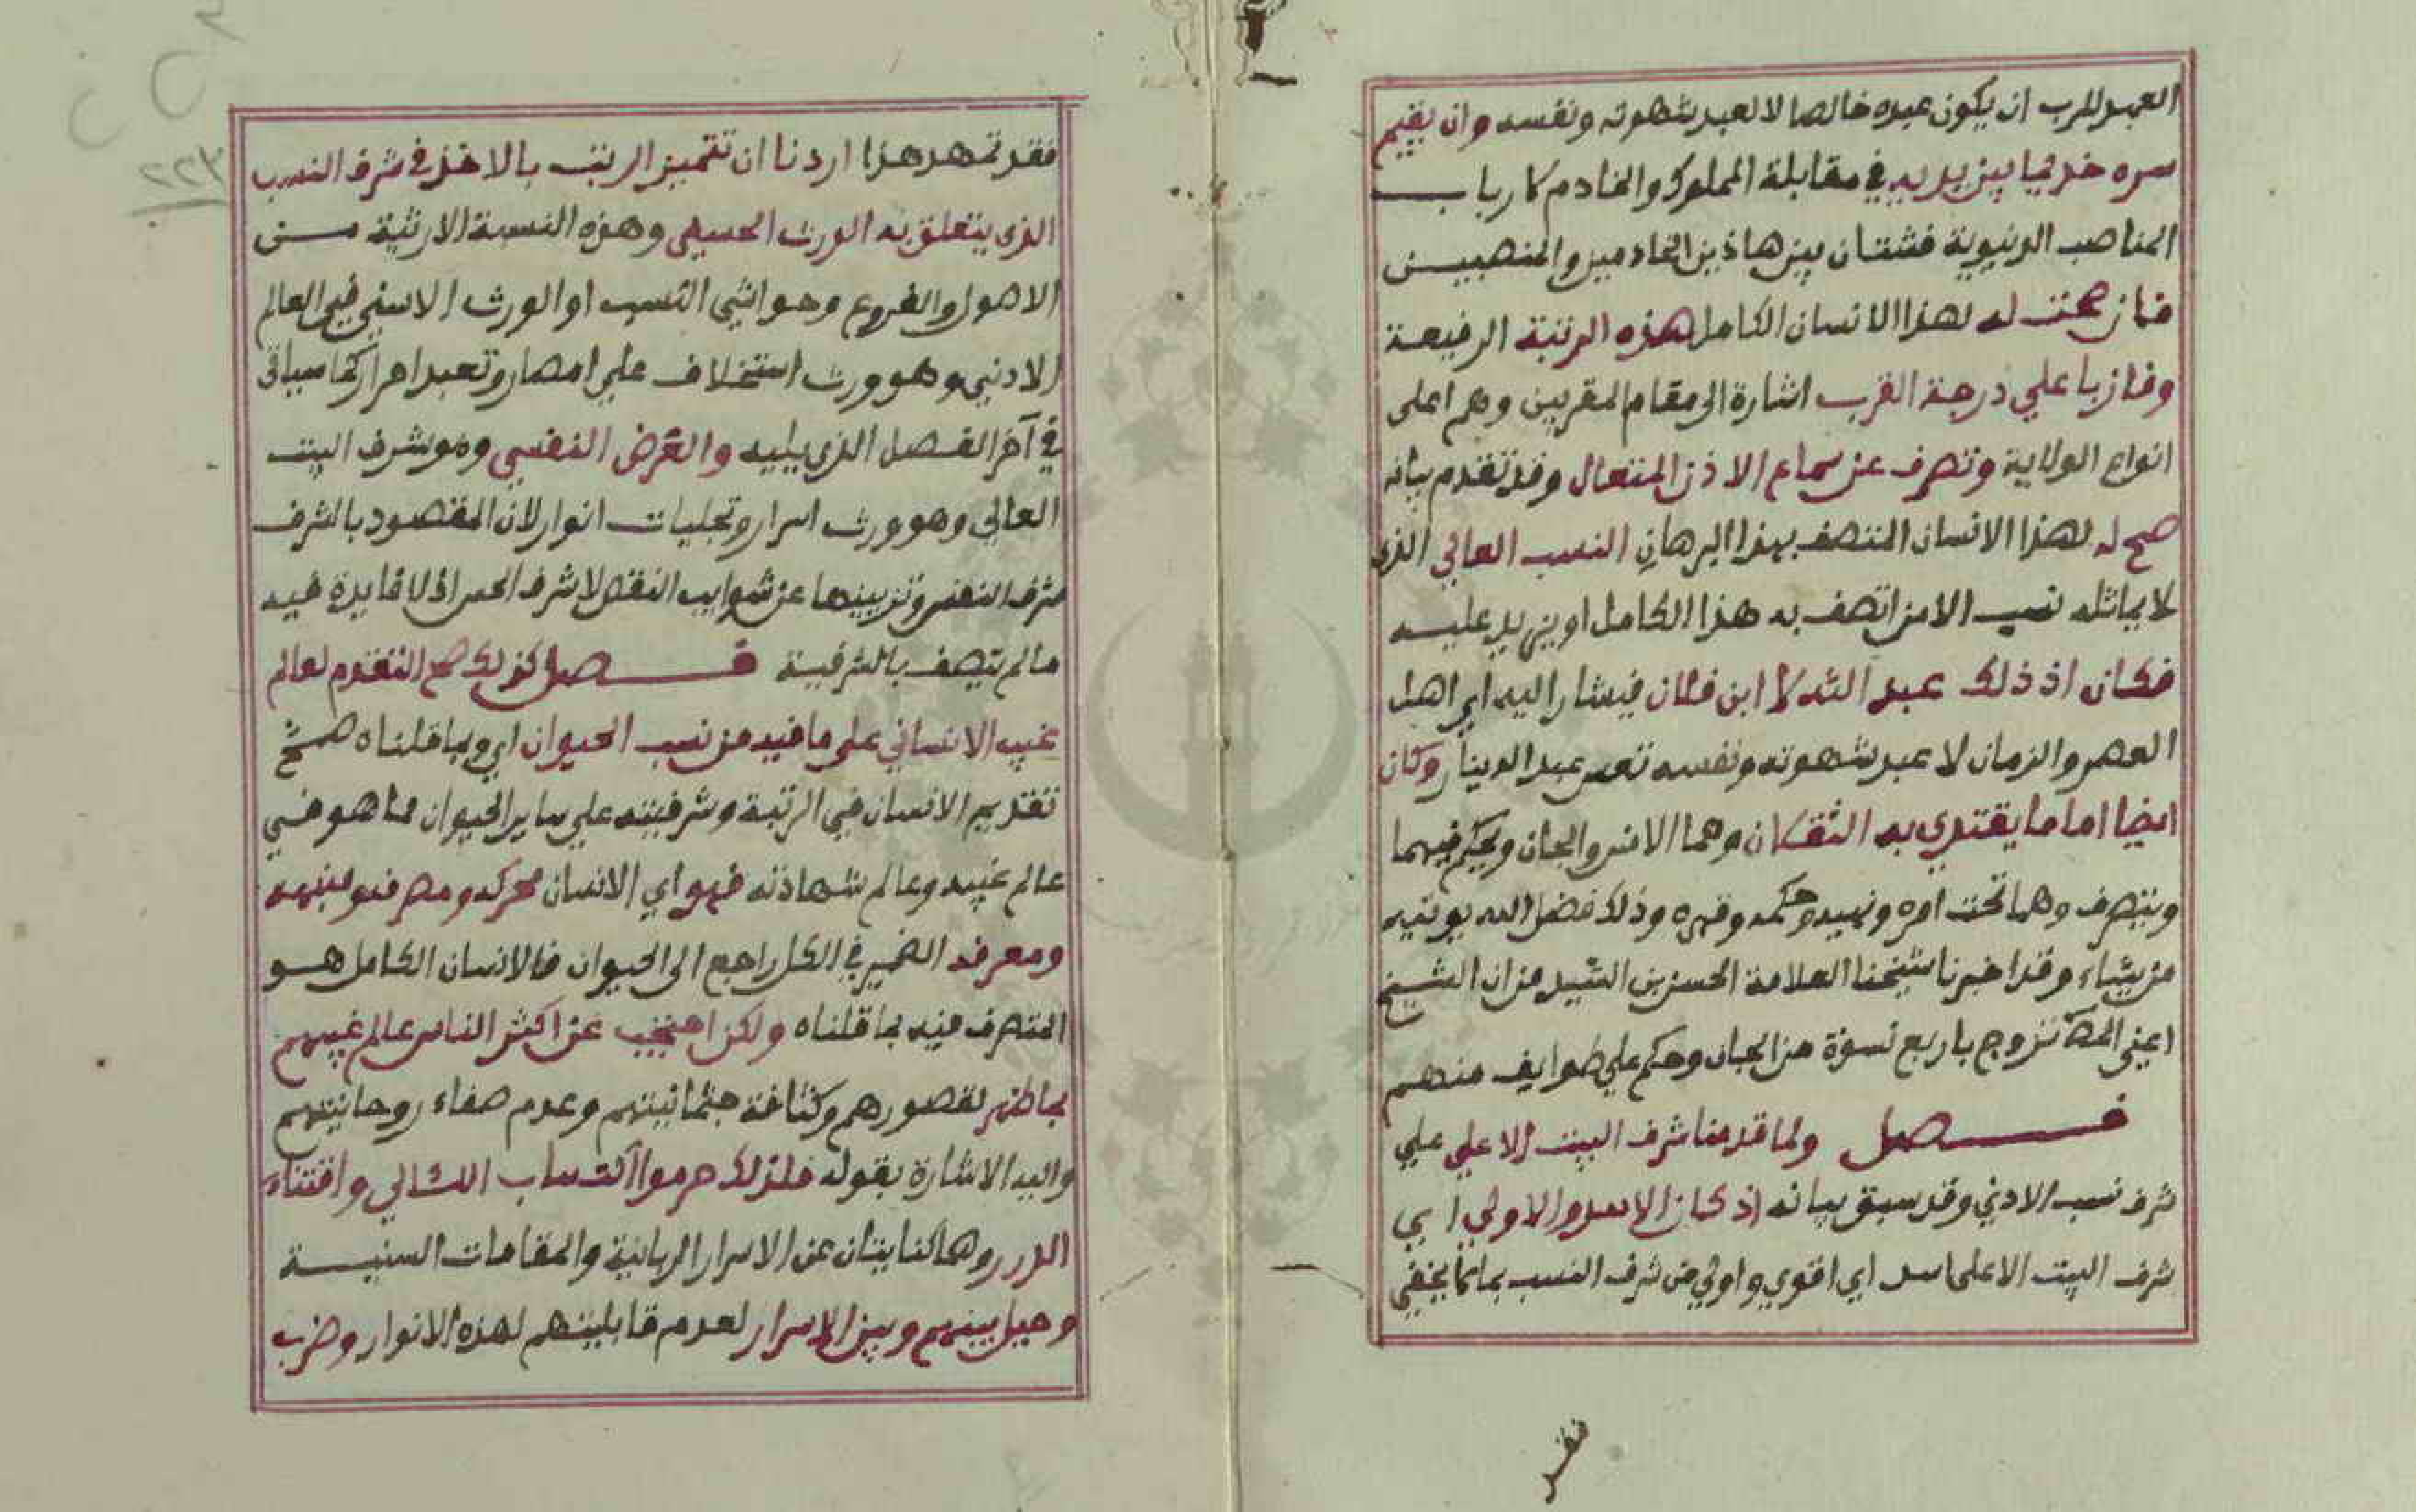 العبد للرب ان يكون عبده خالصا لا لعبد شهوته ونفسه وان يقيم
سره خديما بين يديه في مقابلة المملوك والخادم كارباب
المناصب الدنيوية فشتان بين هاذين الخادمين والمنصبين
فمان صحت له لهذا الانسان الكامل هذه الرتبة الرفيعة
وفاز باعلي درجة القرب اشارة الى مقام المقربين وهم اعلى
انواع الولاية وتصرف عن سماع الاذن المتعال وقد تقدم بيانه
صح له لهذا الانسان المتصف بهذا البرهان النسب العالي الذي
لا يماثله نسب الا من اتصف به هذا الكامل او يزيد عليه
فكان اذ ذلك عبد الله لا ابن فلان فيشار اليه اي اهل
العصر والزمان لا عبد شهوته ونفسه تعس عبد الدينار وكان
ايضا اماما يقتدي به الثقلان وهما الانس والجان ويحكم فيهما
ويتصرف وهما تحت امره ونهيه وحكمه وقهره وذلك فضل الله يوتيه
من يشاء وقد اخبرنا شيخنا العلامة الحسن بن السيد من ان الشيخ
اعني تزوج باربع نسوة من الجان وحكم علي طوايف منهم
فصل ولما قدمنا شرف البيت الاعلي علي
شرف نسب الادني وقد سبق بيانه اذ كان الاسد والاولي اي
شرف البيت الاعلى اسد اي اقوي واولي من شرف النسب
فقد
٢٢٣
فقد تمهد هذا اردنا ان تتميز الرتب بالاخذ في شرف النسب
الذي يتعلق به الورث الحسي وهذه النسبة الارثية من
الاصول والفروع وحواشي النسب او الورث الاسني في العالم
الادني وهو ورث استخلاف علي امصار وتعبد احرار كما سياتي
في آخر الفصل الذي يليه والغرض النفسي وهو شرف البيت
العالي وهو ورث اسرار وتجليات انوار لان المقصود بالشرف
شرف النفس وتزيينها عن شوايب النقص لا شرف الحس اذ لا فايدة فيه
مالم يتصف بالشرفية فصل كذلك صح التقدم لعالم
غيبه الانساني على ما فيه من نسب الحيوان اي وبما قلناه صح
تقديم الانسان في الرتبة وشرفيته علي ساير الحيوان مما هو في
عالم غيبه وعالم شهادته فهو اي الانسان محركه ومصرفه ومنبهه
ومعرفه الضمير في الكل راجع الى الحيوان فالانسان الكامل هو
المتصرف فيه بما قلناه ولكن احتجب عن اكثر الناس عالم غيبهم
بباطنهم لقصورهم وكثافة جثمانيتهم وعدم صفاء روحانيتهم
واليه الاشارة بقوله فلذلك حرموا اكتساب اللئالي واقتناء
الدرر وهما كنايتان عن الاسرار الربانية والمقامات السنية
وحيل بينهم وبين الاسرار لعدم قابليتهم لهذه الانوار وضرب